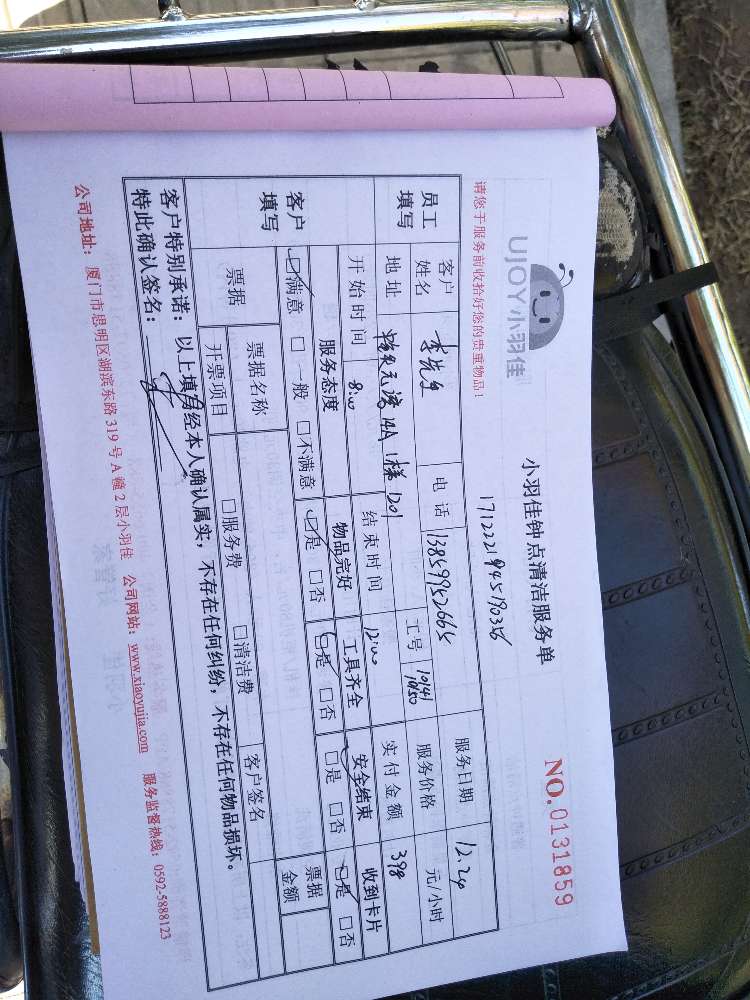 UJOY小羽佳
小羽佳钟点清洁服务单
NO.0131859
请您于服务前收拾好您的贵重物品!
17122194519036
员工填写
客户姓名 李先生 电话 13859952665 工号 10141 1050 服务日期 12.24
地址 14A1梯1201 服务价格 元/小时
开始时间 8:00 结束时间 12:00 实付金额 398
客户填写
服务态度 物品完好 工具齐全 安全结束 收到卡片
☑满意 □一般 □不满意 ☑是 □否 ☑是 □否 □是 □否 ☑是 □否
票据 票据名称 □服务费 □清洁费 票据金额
开票项目 客户签名
客户特别承诺:以上填写经本人确认属实,不存在任何纠纷,不存在任何物品损坏。
特此确认签名:
公司地址:厦门市思明区湖滨东路319号A幢2层小羽佳 公司网站:www.xiaoyujia.com 服务监督热线:0592-5888123